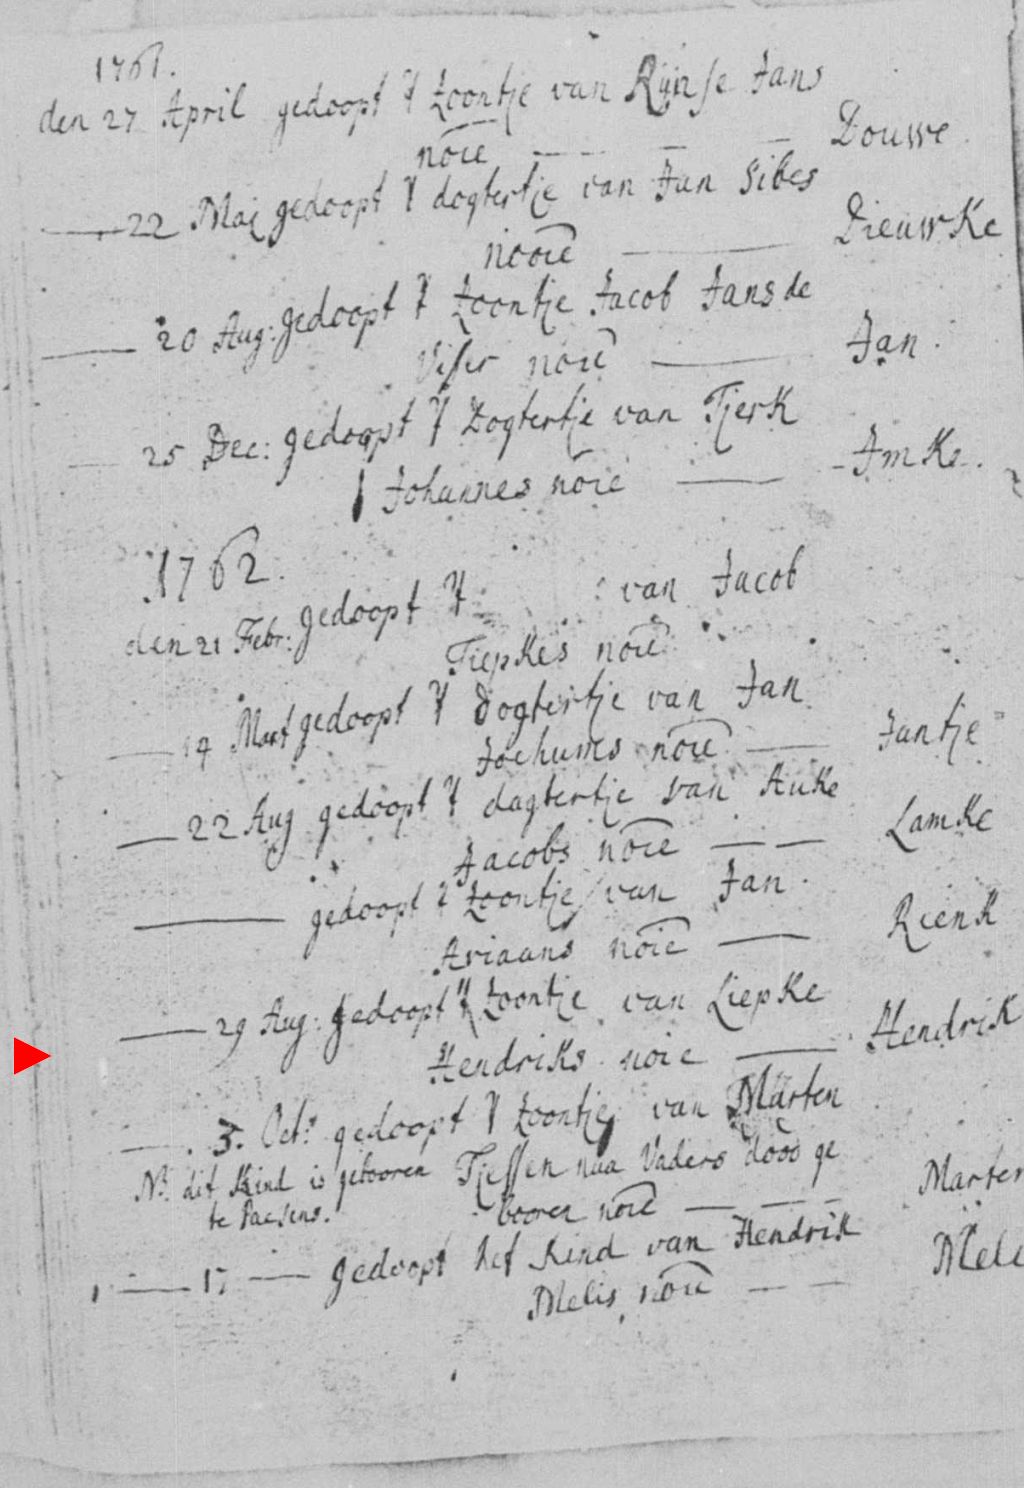 1761.
den 27 April gedoopt 't zoontje van Rijnse Jans
noīe Douwe
22 Maij gedoopt 't dogtertje van Jan Sibes
nooīe Dieuwke
20 Aug: gedoopt 't zoontje Jacob Jans de
Visser noīe Jan
25 Dec: gedoopt 't Dogtertje van Tjerk
Johannes noie Imke.
1762.
den 21 Febr: gedoopt 't van Jacob
Tiepkes noīe
14 Mart gedoopt 't Dogtertje van Jan
Jochums noīe Jantje
22 Aug gedoopt 't dagtertje van Auke
Jacobs noīe Lamke
gedoopt 't zoontje van Jan
Ariaans noīe Rienk
29 Aug: gedoopt 't zoontje van Liepke
Hendriks noie Hendrik
3. Oct: gedoopt 't zoontje van Marten
Nb. dit Kind is gebooren Tjessen naa Vaders dood ge
te Paesens. booren noīe Marten
17 gedoopt het Kind van Hendrik
Melis noīe Mele